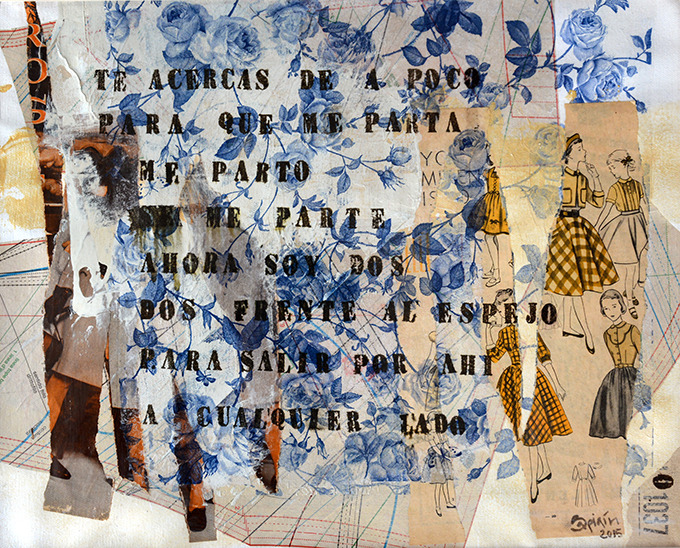 ROS
TE ACERCAS DE A POCO
PARA QUE ME PARTA
ME PARTO
SE ME PARTE
, AHORA SOY DOS
DOS FRENTE AL ESPEJO
PARA SALIR POR AHI
A CUALQUIER LADO
YO
M
IS
1037
2015